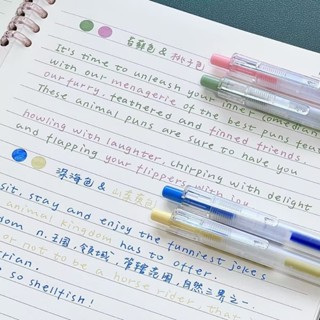 苔蘚色 & 桃子色
It's time to unleash your inner comedian
with our menagerie of the best puns feat
our furry, feathered and finned friends.
These animal puns are sure to have you
howling with laughter, chirping with delight
and flapping your flippers with joy
深海色 &
sit, stay and enjoy the funniest jokes
animal kingdom has to offer.
dom n. 王國, 領域, 管轄范圍, 自然三界之一.
or not to be a horse rider that
rian.
so shellfish!